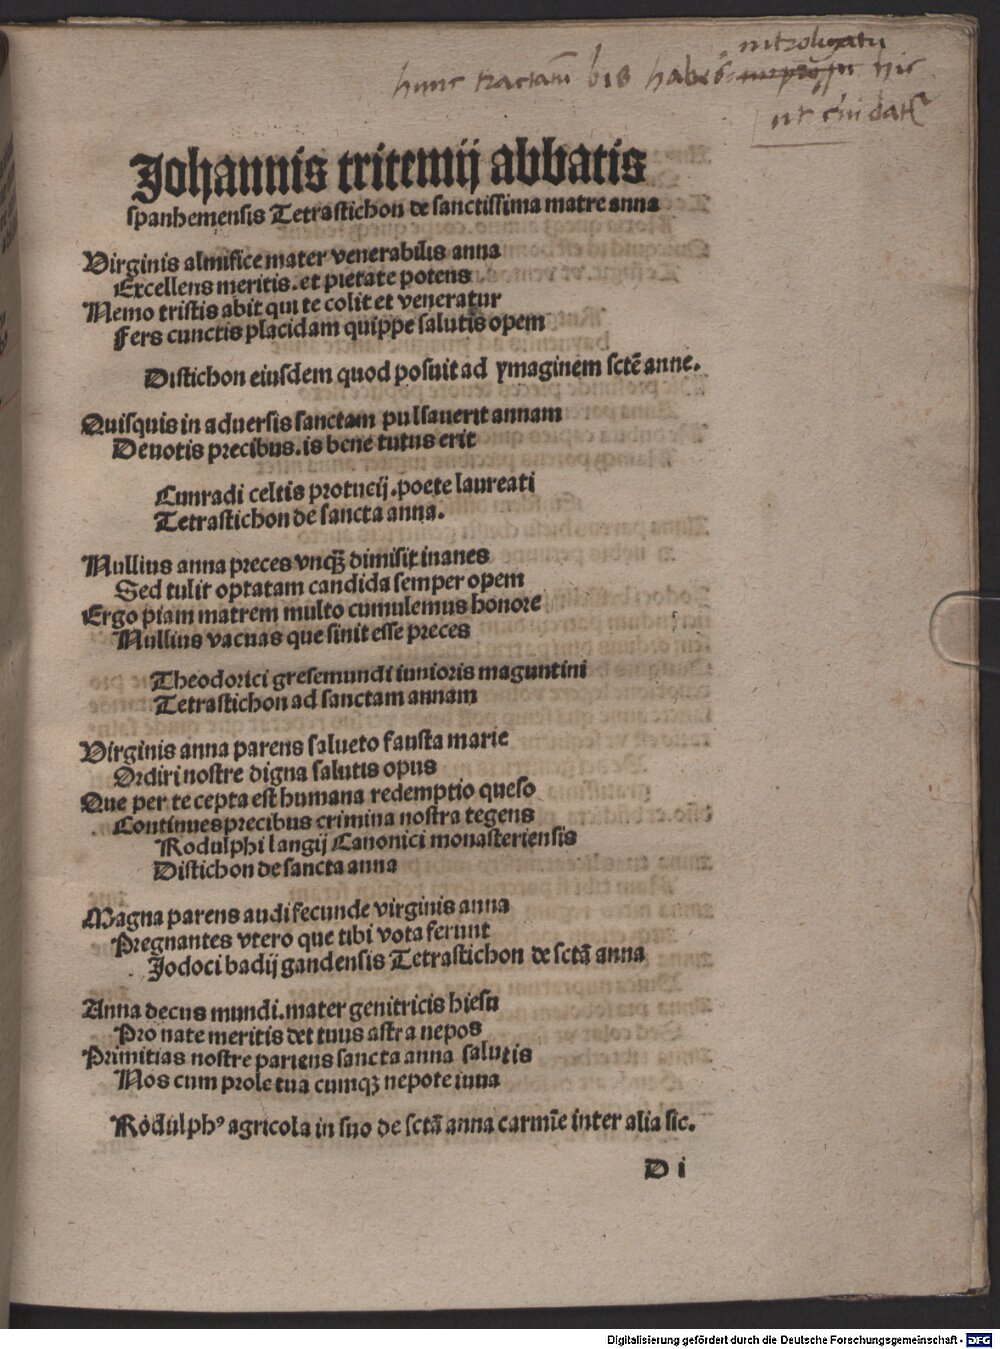 hunc tractatu bis habes
Johannis tritemij abbatis
spanhemensis Tetrastichon de sanctissima matre anna
Virginis almifice mater venerabilis anna
Excellens meritis. et pietate potens
Nemo tristis abit qui te colit et veneratur
Fers cunctis placidam quippe salutis opem
Distichon eiusdem quod posuit ad ymaginem sctē anne.
Quisquis in aduersis sanctam pulsauerit annam
Deuotis precibus. is bene tutus erit
Cunradi celtis protucij. poete laureati
Tetrastichon de sancta anna.
Nullius anna preces vnqꝫ dimisit inanes
Sed tulit optatam candida semper opem
Ergo piam matrem multo cumulemus honore
Nullius vacuas que sinit esse preces
Theodorici gresemundi iunioris maguntini
Tetrastichon ad sanctam annam
Virginis anna parens salueto fausta marie
Ordiri nostre digna salutis opus
Que per te cepta est humana redemptio queso
Continues precibus crimina nostra tegens
Rodulphi langij Canonici monasteriensis
Distichon de sancta anna
Magna parens audi fecunde virginis anna
Pregnantes vtero que tibi vota ferunt
Jodoci badij gandensis Tetrastichon de sctā anna
Anna decus mundi. mater genitricis hiesu
Pro nate meritis det tuus astra nepos
Primitias nostre pariens sancta anna salutis
Nos cum prole tua cumqꝫ nepote iuua
Rodulphꝰ agricola in suo de sctā anna carmīe inter alia sic.
D i
Digitalisierung gefördert durch die Deutsche Forschungsgemeinschaft - DFG